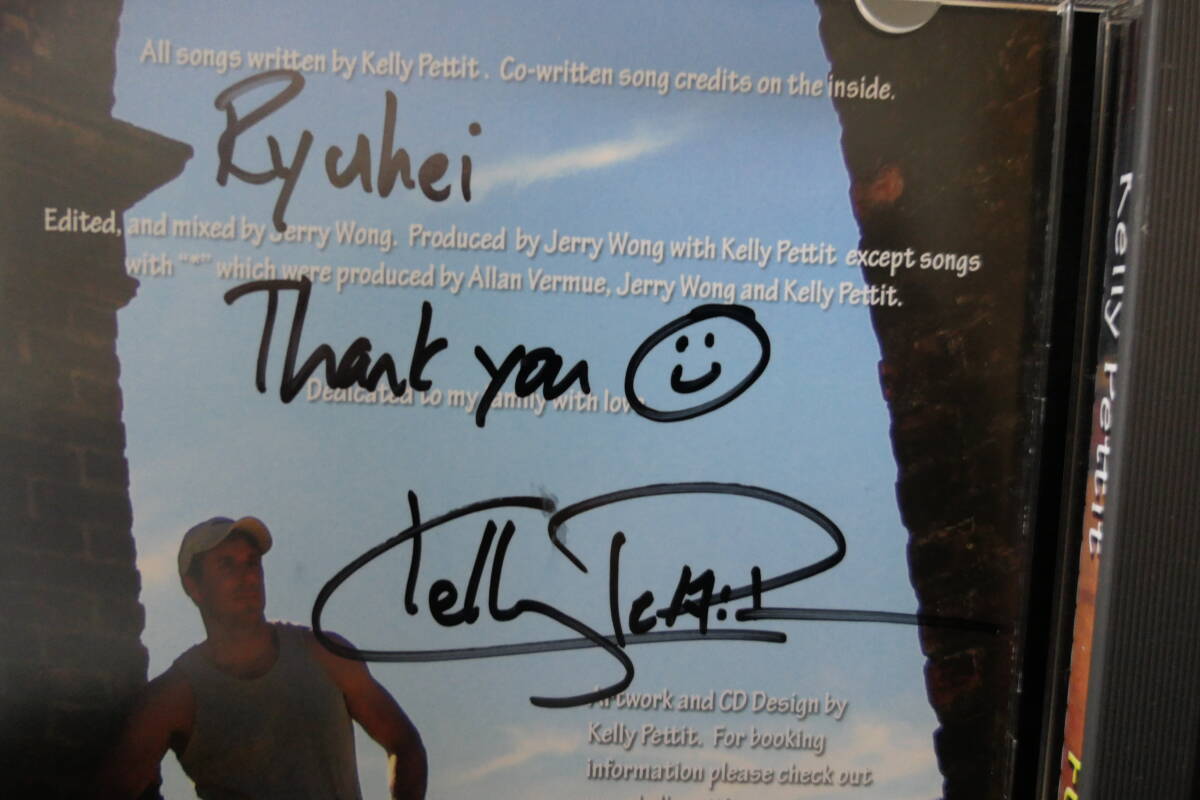 All songs written by Kelly Pettit. Co-written song credits on the inside.
Ryuhei
Edited, and mixed by Jerry Wong. Produced by Jerry Wong with Kelly Pettit except songs
with "*" which were produced by Allan Vermue, Jerry Wong and Kelly Pettit.
Thank you
Dedicated to my family with love
Kelly Pettit
Artwork and CD Design by
Kelly Pettit. For booking
information please check out
Kelly Pettit